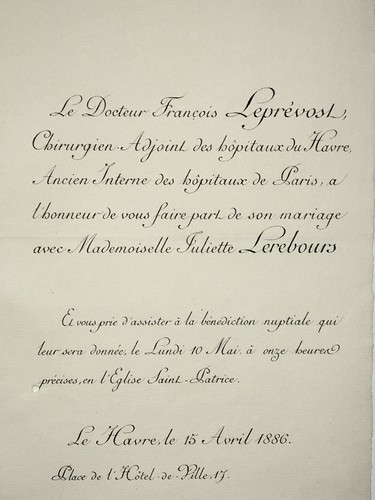 Le Docteur François Leprévost,
Chirurgien Adjoint des hôpitaux du Havre,
Ancien Interne des hôpitaux de Paris, a
l'honneur de vous faire part de son mariage
avec Mademoiselle Juliette Lerebours
Et vous prie d'assister à la bénédiction nuptiale qui
leur sera donnée, le Lundi 10 Mai, à onze heures
précises, en l'Eglise Saint-Patrice.
Le Havre, le 15 Avril 1886.
Place de l'Hôtel-de-Ville, 17.